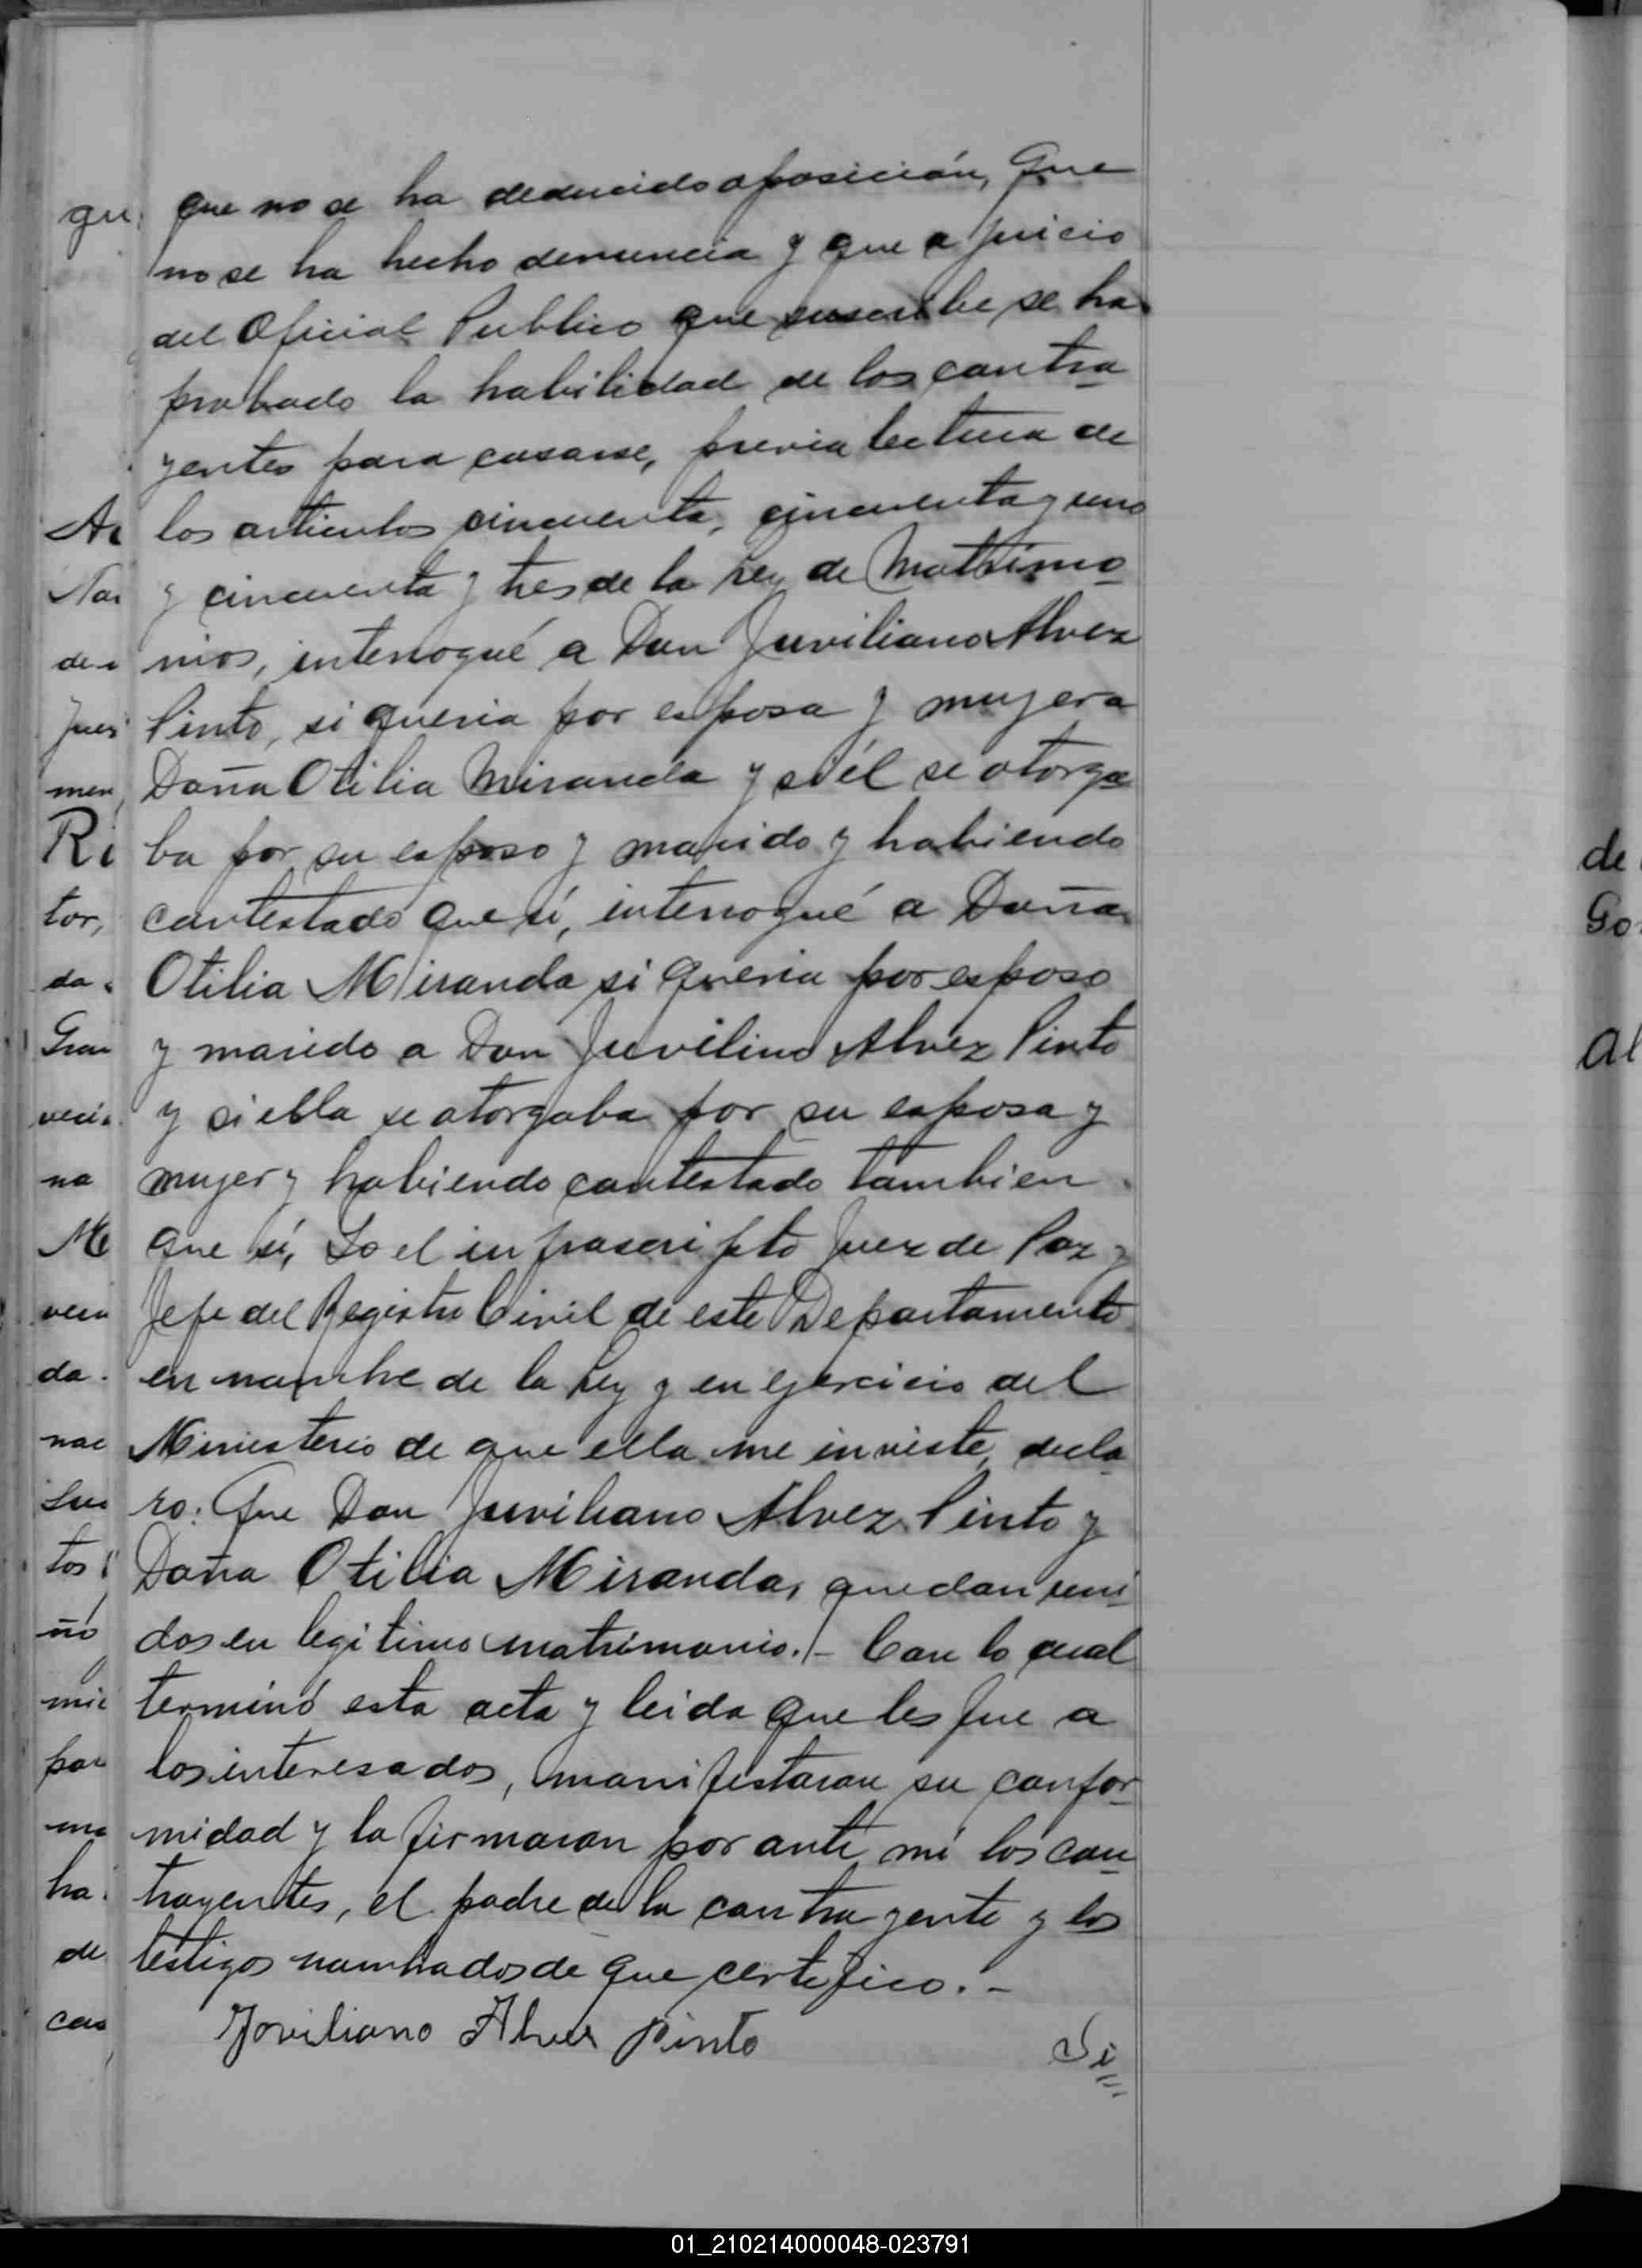 que no se ha deducido oposición, Que
no se ha hecho denuncia y que a juicio
del Oficial Publico que suscribe se ha
probado la habilidad de los contra
yentes para casarse, previa lectura de
los articulos cincuenta, cincuenta y uno
y cincuenta y tres de la Ley de Matrimo
nios, interrogué a Don Juviliano Alvez
Pinto, si queria por esposa y mujer a
Doña Otilia Miranda y si él se otorga
ba por su esposo y marido y habiendo
contestado que sí, interrogué a Doña
Otilia Miranda si queria por esposo
y marido a Don Juvilino Alvez Pinto
y si ella se otorgaba por su esposa y
mujer y habiendo contestado tambien
que sí, Yo el infrascripto Juez de Paz y
Jefe del Registro Civil de este Departamento
en nombre de la Ley y en ejercicio del
Ministerio de que ella me inviste, decla
ro: Que Don Juviliano Alvez Pinto y
Doña Otilia Miranda, quedan uni
dos en legitimo matrimonio.- Con lo cual
terminó esta acta y leida que les fue a
los interesados, manifestaron su confor
midad y la firmaron por ante mi los con
trayentes, el padre de la contrayente y los
testigos nombrados de que certifico.-
Joviliano Alves Pinto
Si
de
Go
Al
01_210214000048-023791